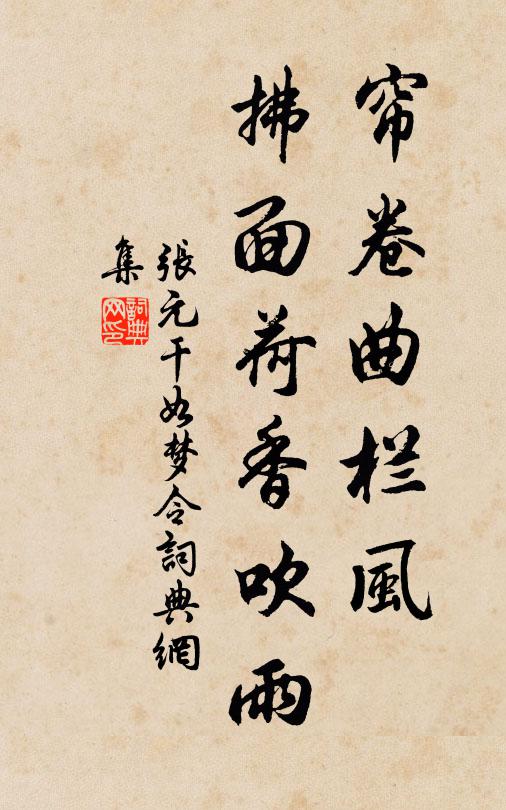 帘卷曲栏風
拂面荷香吹雨
張元干如梦令詞典網
集
詞典
网印